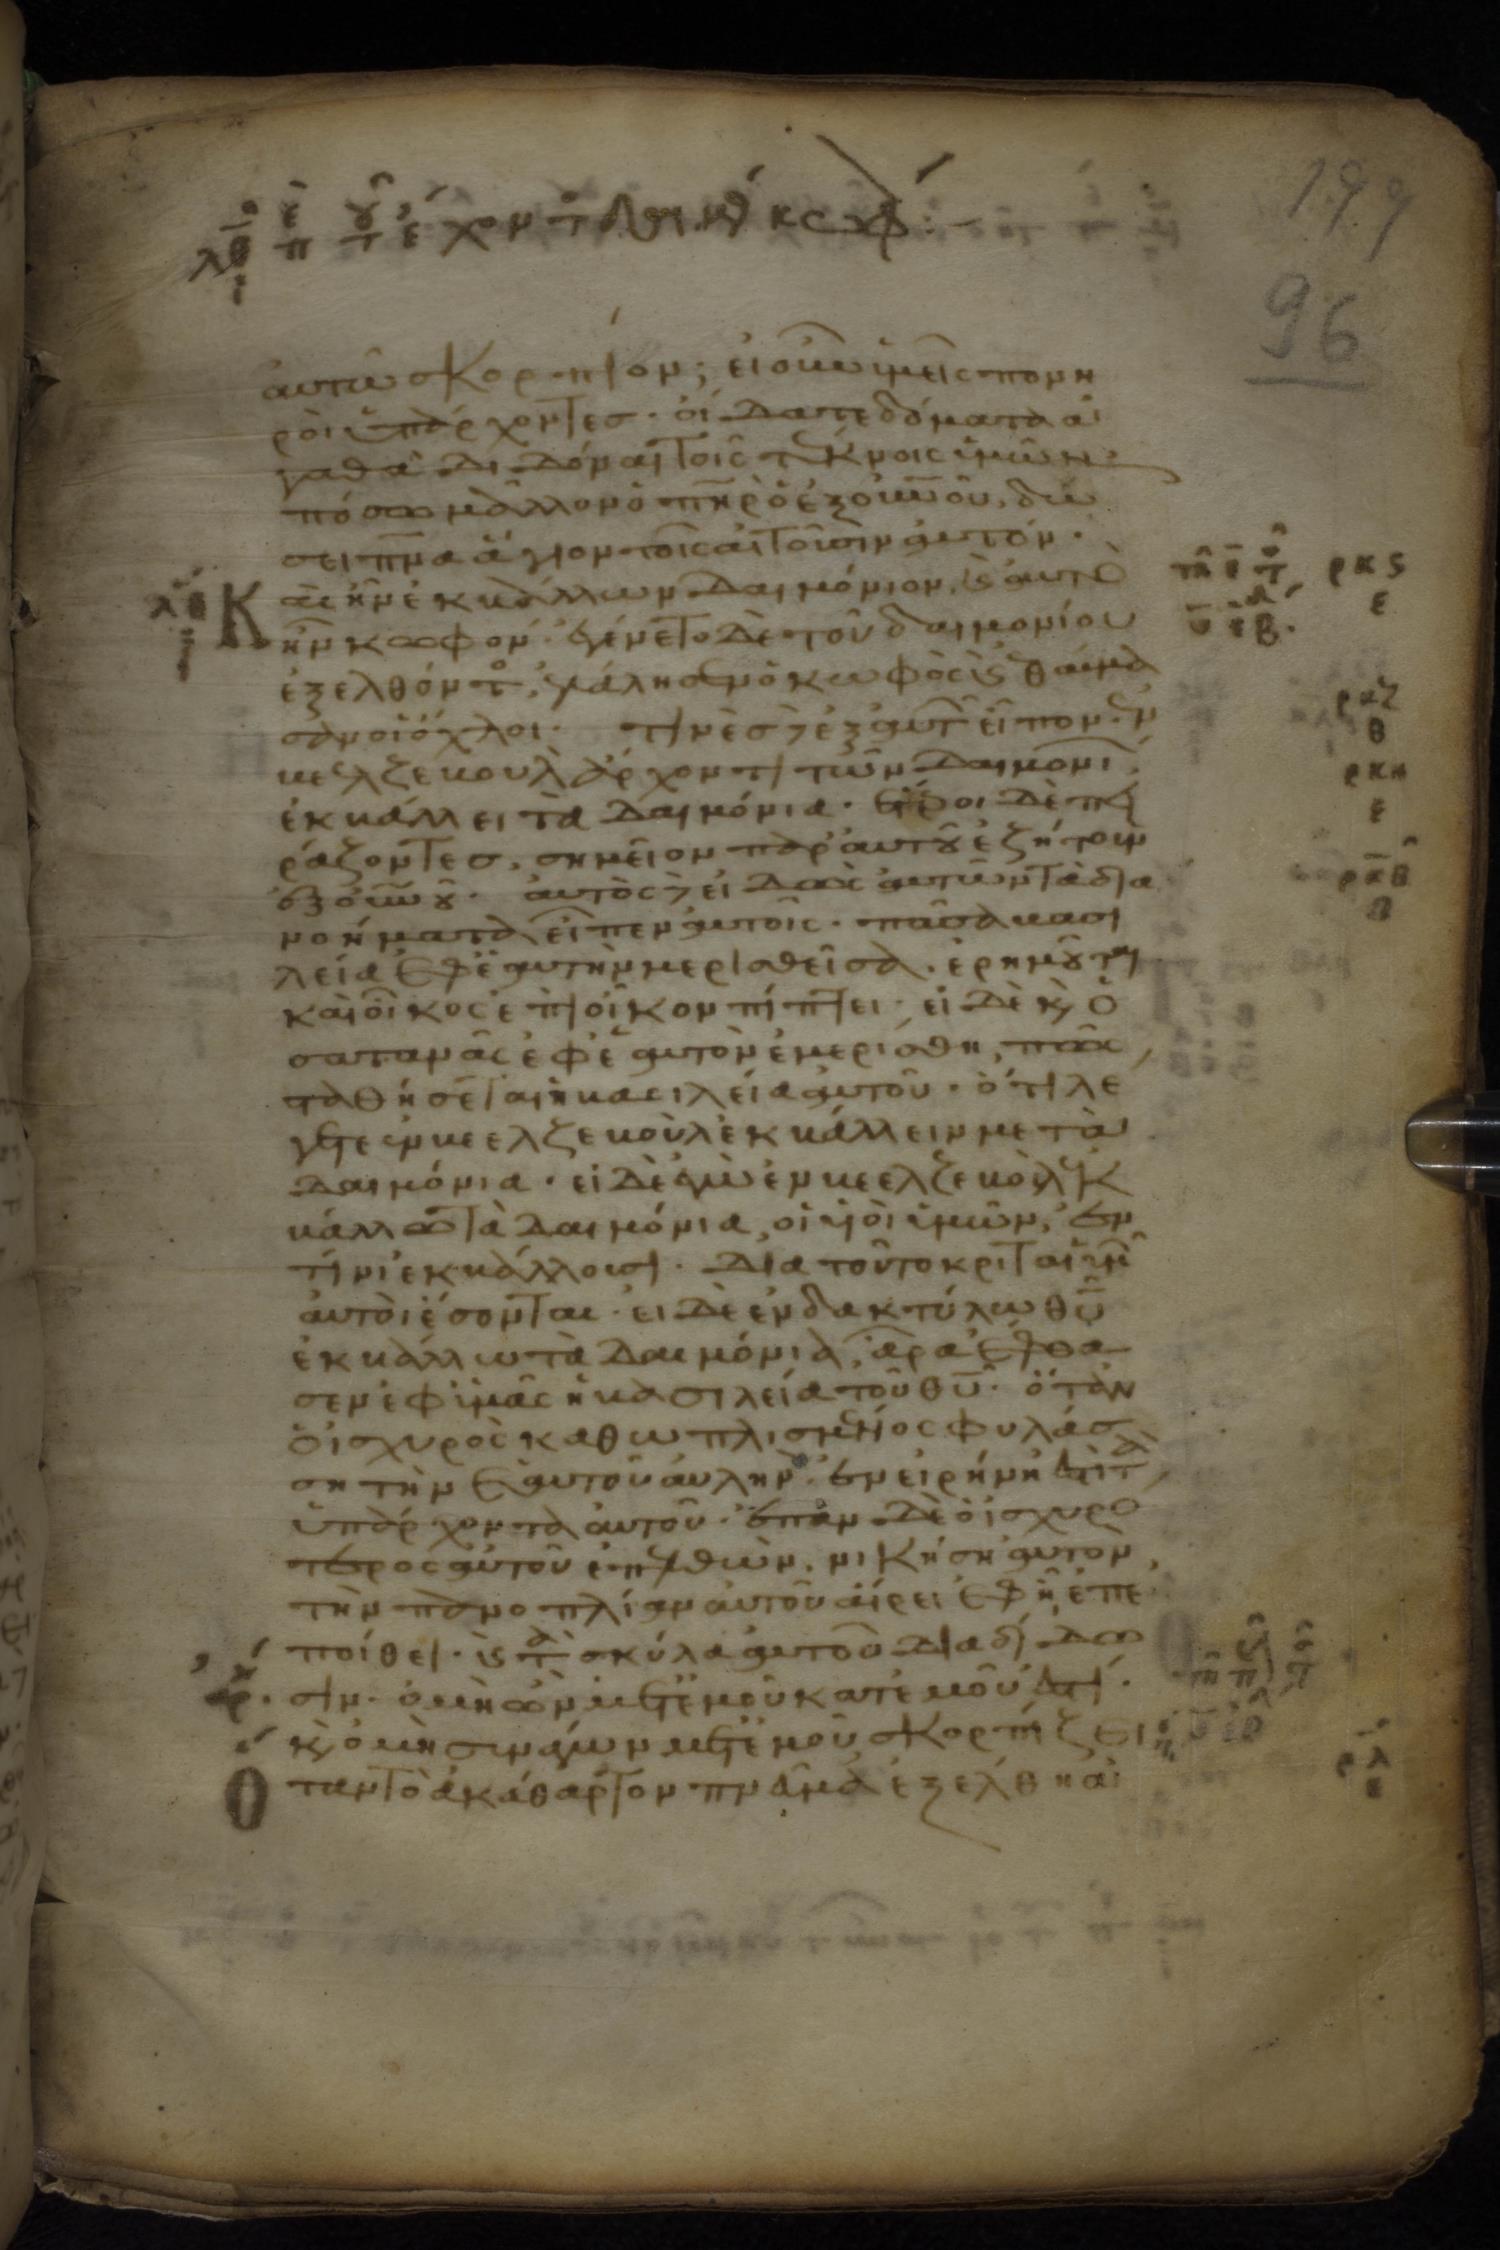 λθ περὶ τοῦ ἔχοντος δαιμόνιον κωφόν :-
199
96
αὐτῶ σκορπίον; εἰ οὖν ὑμεῖς πονη
ροὶ ὑπάρχοντες· οἴδατε δόματα ἀ
γαθὰ διδόναι τοῖς τέκνοις ὑμῶν·
πόσω μᾶλλον ὁ πηρ ὁ ἐξ οὐνοῦ, δώ
σει πνα ἅγιον τοῖς αἰτοῦσιν αὐτόν·
Καὶ ἦν ἐκβάλλων δαιμόνιον, καὶ αὐτὸ
ἦν κωφόν· ἐγένετο δὲ τοῦ δαιμονίου
ἐξελθόντος, ἐλάλησεν ὁ κωφὸς καὶ ἐθαύμα
σαν οἱ ὄχλοι· τινὲς δὲ ἐξ αὐτῶν εἶπον· ἐν
βεελζεβοὺλ ἄρχοντι τῶν δαιμονί
ἐκβάλλει τὰ δαιμόνια· ἕτεροι δὲ πει
ράζοντες, σημεῖον παρ' αὐτοῦ ἐζήτουν
ἐξ οὐνοῦ· αὐτὸς δὲ εἰδὼς αὐτῶν τὰ δια
νοήματα εἶπεν αὐτοῖς· πᾶσα βασι
λεία ἐφ' ἑαυτὴν μερισθεῖσα, ἐρημοῦται
καὶ οἶκος ἐπὶ οἶκον πίπτει· εἰ δὲ καὶ ὁ
σατανᾶς ἐφ' ἑαυτὸν ἐμερίσθη, πῶς
ταθήσεται ἡ βασιλεία αὐτοῦ· ὅτι λέ
γετε ἐν βεελζεβοὺλ ἐκβάλλειν με τὰ
δαιμόνια· εἰ δὲ ἐγὼ ἐν βεελζεβοὺλ ἐκ
βάλλω τὰ δαιμόνια, οἱ υἱοὶ ὑμῶν, ἐν
τίνι ἐκβάλλουσι· διὰ τοῦτο κριταὶ ὑμῶν
αὐτοὶ ἔσονται· εἰ δὲ ἐν δακτύλω θυ
ἐκβάλλω τὰ δαιμόνια, ἄρα ἔφθα
σεν ἐφ' ὑμᾶς ἡ βασιλεία τοῦ θυ· ὅταν
ὁ ἰσχυρὸς καθωπλισμένος φυλάσ
ση τὴν ἑαυτοῦ αὐλὴν· ἐν εἰρήνη ἐστὶ τὰ
ὑπάρχοντα αὐτοῦ· ἐπὰν δὲ ὁ ἰσχυρό
τερος αὐτοῦ ἐπελθὼν, νικήση αὐτὸν,
τὴν πανοπλίαν αὐτοῦ αἴρει ἐφ' ἧ ἐπε
ποίθει· καὶ τὰ σκύλα αὐτοῦ διαδίδω
σιν· ὁ μὴ ὢν μετ' ἐμοῦ κατ' ἐμοῦ ἐστί·
καὶ ὁ μὴ συνάγων μετ' ἐμοῦ σκορπίζει
Ὅταν τὸ ἀκάθαρτον πνεῦμα ἐξέλθη ἀ
ρκς
ε
ρκζ
β
ρκη
ε
ρκθ
ρλ
ε